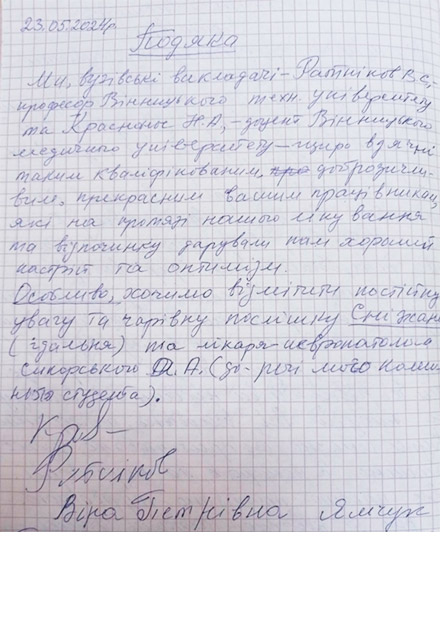 23.05.2024р.
Подяка
Ми, вузівські викладачі – Ратніков В.С., –
професор Вінницького техн. університету
та Красноніс Н.А, – доцент Вінницького
медичного університету – щиро вдячні
таким кваліфікованим, доброзичли-
вим, прекрасним вашим працівникам,
які на протязі нашого лікування
та відпочинку дарували нам хороший
настрій та оптимізм.
Особливо, хочимо відмітити постійну
увагу та чарівну посмішку Сніжани
(їдальня) та лікаря-невропатолога
Сикорського А.А. (до-речі мого колиш
нього студента).
Ратніков
Віра Петрівна Ямчук